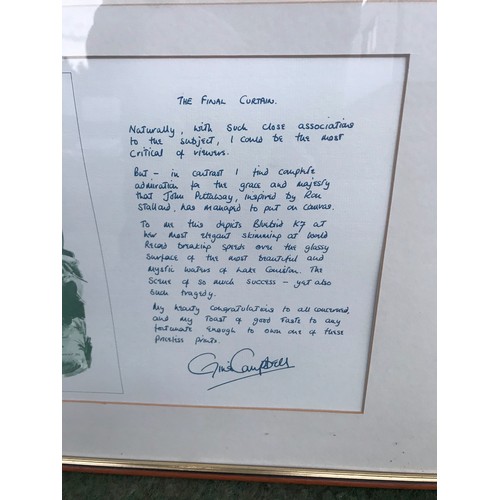 THE FINAL CURTAIN.
Naturally, with such close associations
to the subject, I could be the most
critical of viewers.
But - in contrast I find complete
admiration for the grace and majesty
that John Pittaway, inspired by Ron
Stallard, has managed to put on canvas.
To me this depicts Bluebird K7 at
her most elegant skimming at world
record breaking speeds over the glassy
surface of the most beautiful and
mystic waters of Lake Coniston. The
scene of so much success - yet also
such tragedy.
My hearty congratulations to all concerned,
and my toast of good taste to any
fortunate enough to own one of these
priceless prints.
Gina Campbell